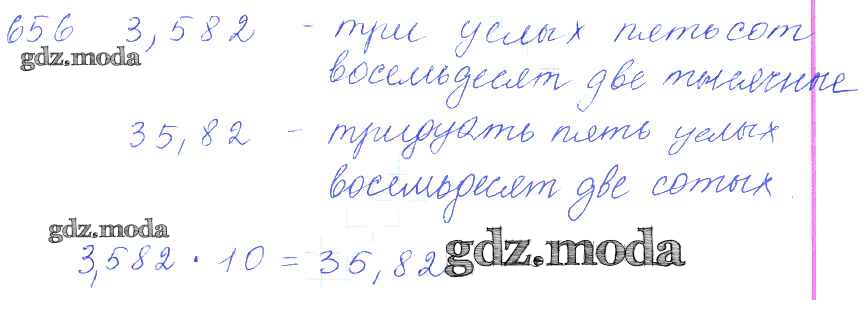 656 3,582 - три целых пятьсот
gdz.moda
восемьдесят две тысячные
35,82 - тридцать пять целых
восемьдесят две сотых
gdz.moda
3,582 · 10 = 35,82
gdz.moda